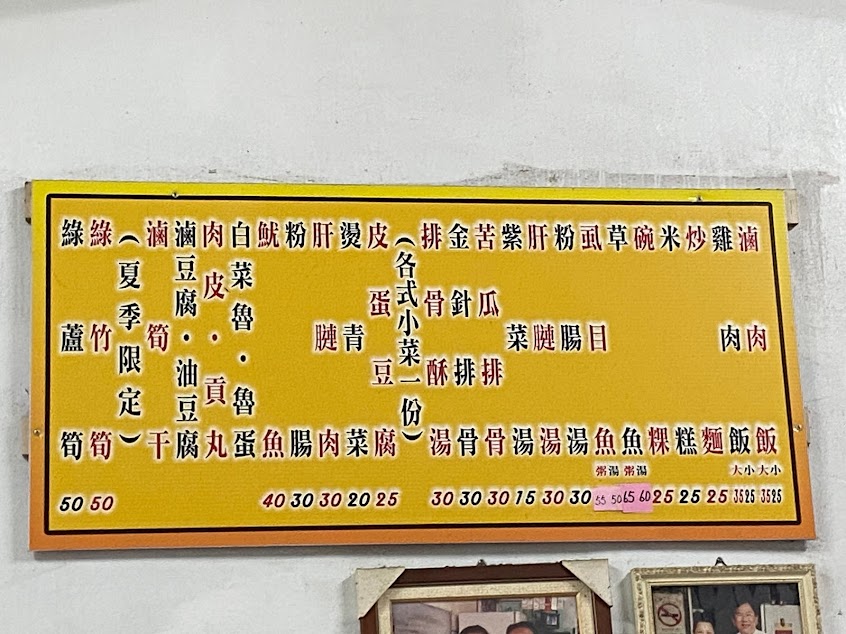 滷肉飯 大小 35 25
雞肉飯 大小 35 25
炒麵 25
米糕 25
碗粿 25
草魚 粥湯 65 60
虱目魚 粥湯 55 50
粉腸湯 30
肝腱湯 30
紫菜湯 15
苦瓜排骨 30
金針排骨 30
排骨酥湯 30
（各式小菜一份）
皮蛋豆腐 25
燙青菜 20
肝腱肉 30
粉腸 30
魷魚 40
白菜魯・魯蛋
肉皮・貢丸
滷豆腐・油豆腐
滷筍干
（夏季限定）
綠竹筍 50
綠蘆筍 50